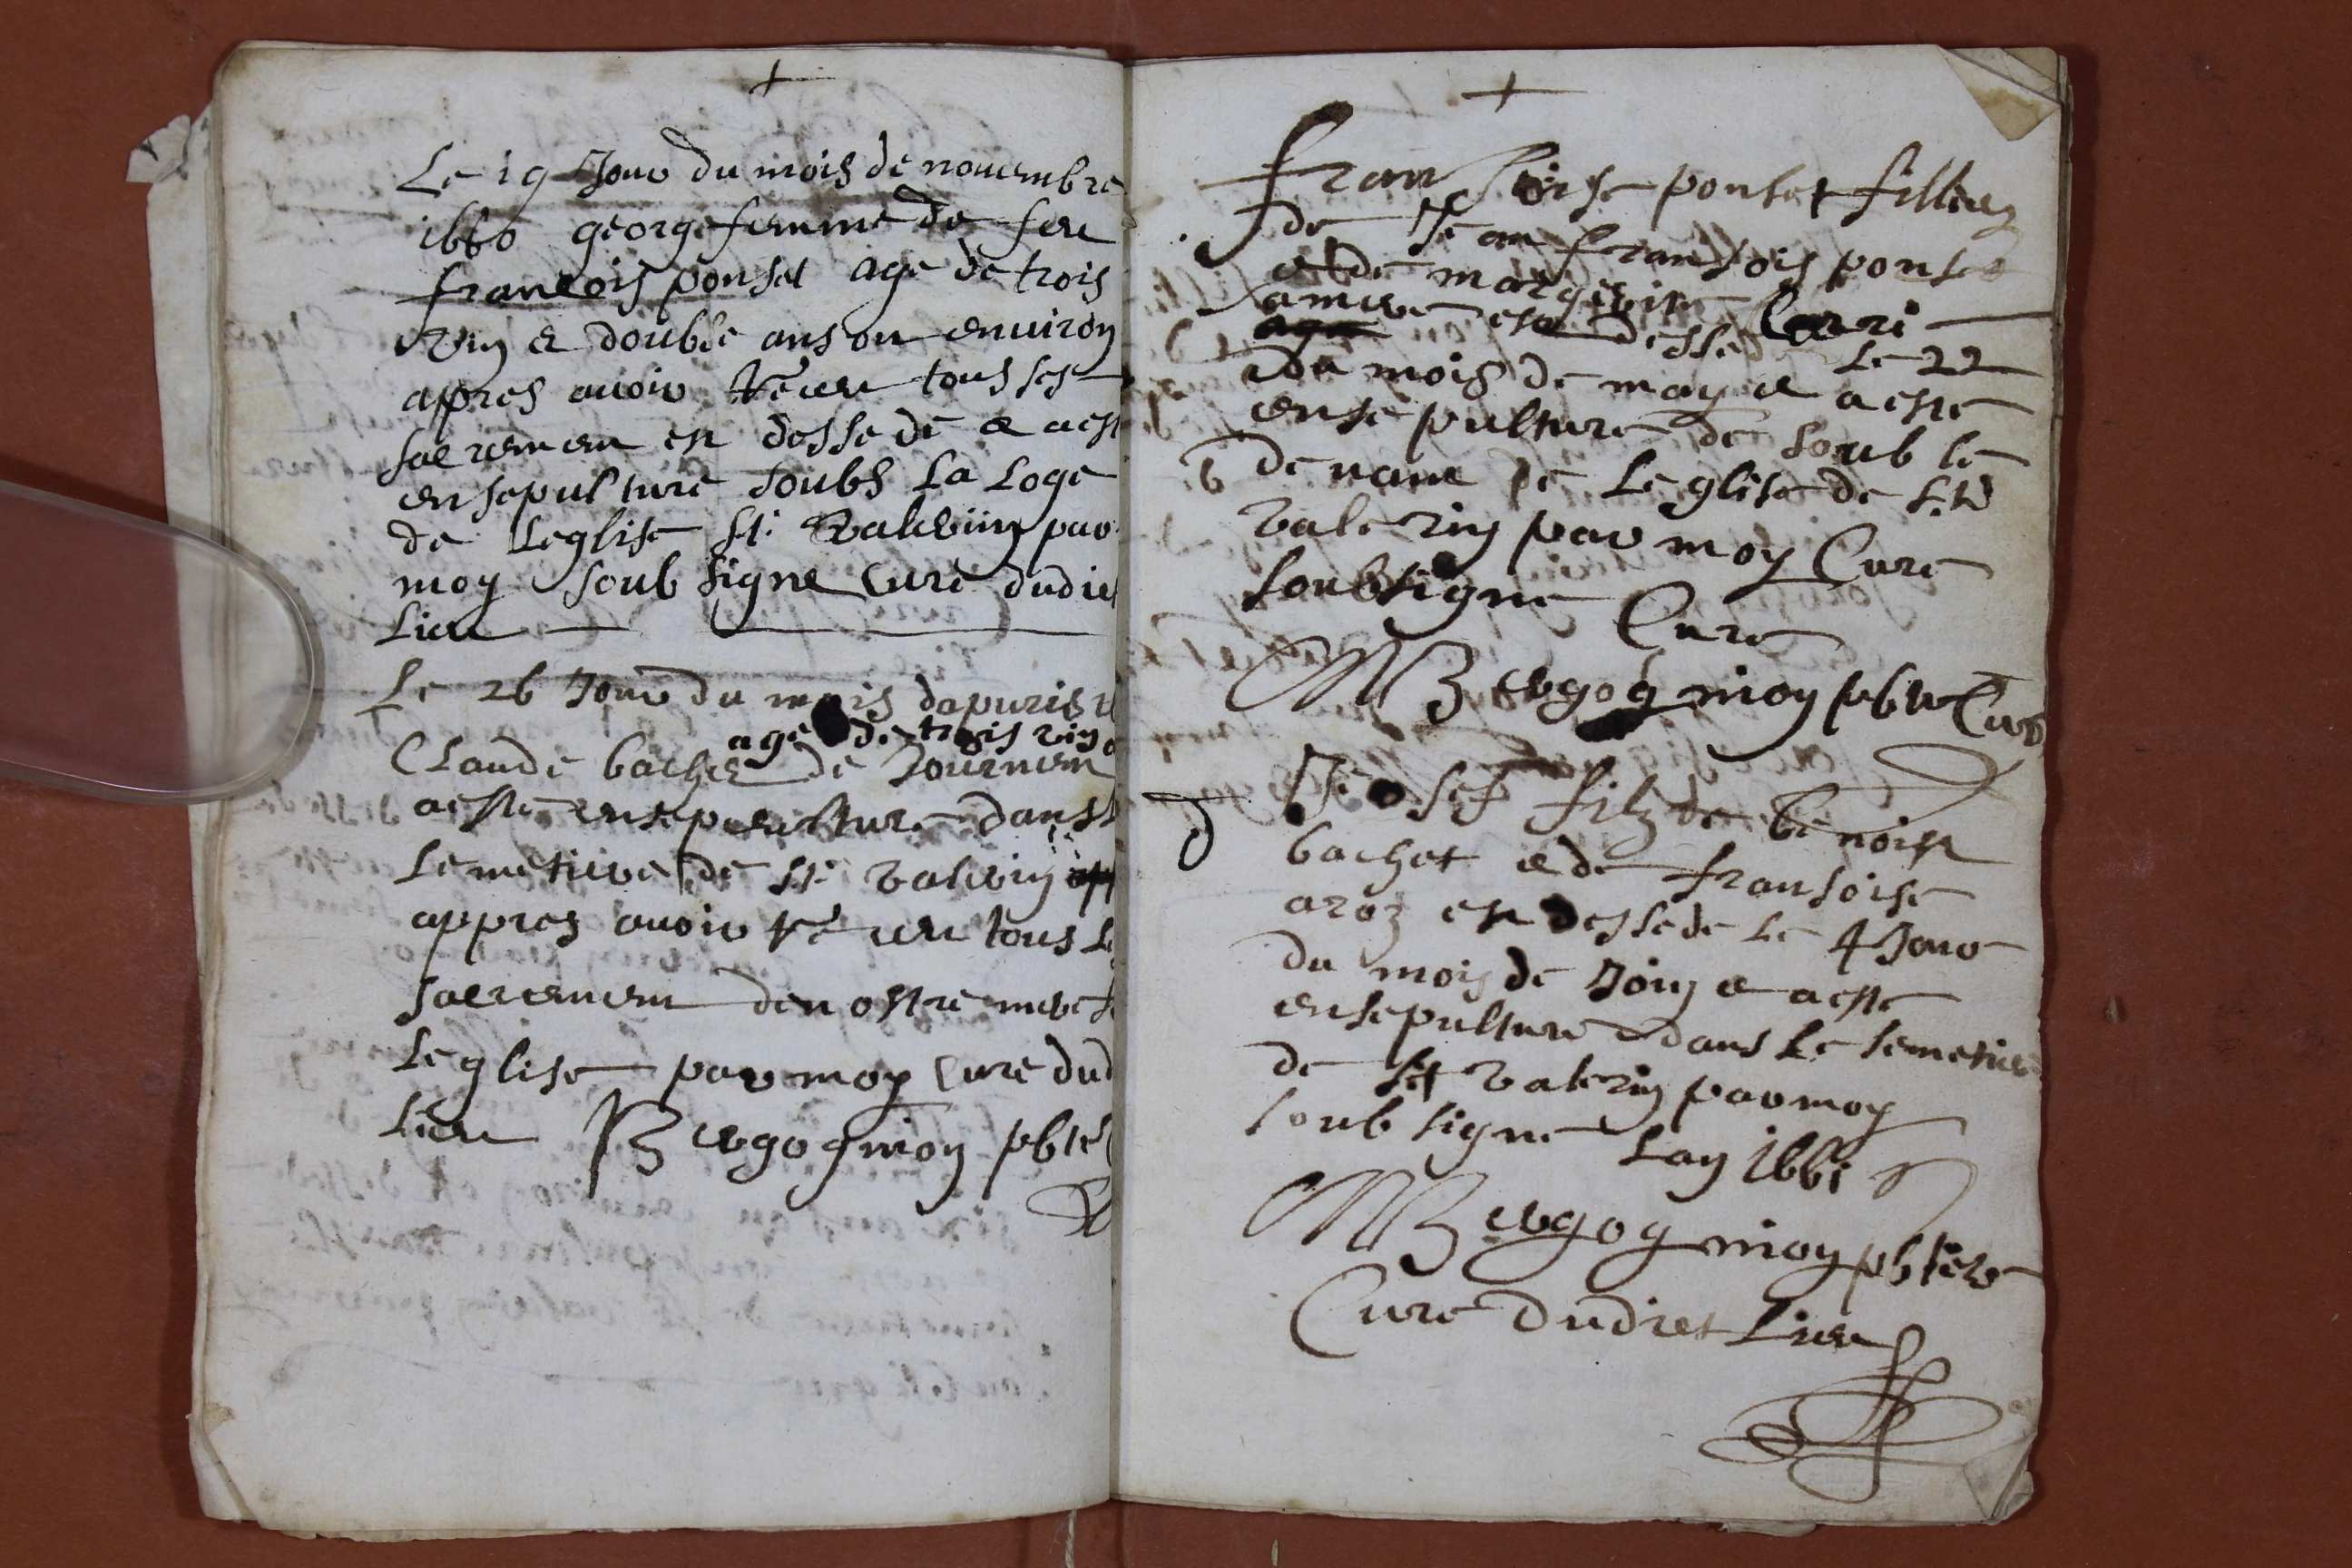 +
Le 19 Jour du mois de nouembre
1660 george femme de feu
francois ponset age de trois
vin et double ans ou enuiron
apres auoir Receu tous ses
sacremen est dessede et a est
ensepulture soubs La Loge
de Leglise st. Valerin par
moy soub signe Cure dudict
Lieu
Le 26 Jour du mois dapuris
age de trois vin
Claude bachet de Tournem
aeste ensepeulture dans
Lemetiere de st. valerin
appres auoir Receu tous Le
sacremem denostre mere
Leglise par moy Cure dud
Lieu Bergogmion pbre
+
Fransoise ponset filliez
de Jean fransois ponset
et de margerite Carri
amve est dessede Le 22
du mois de may et aeste
ensepulture de soub le
denant de Leglise de st
valerin par moy Cure
soubsigne Cure
M Bergogmion pbre Cure
Josef filz de benoist
bachet et de fransoise
aroz est dessede Le 4 Jour
du mois de Join et aeste
ensepulture dans Le semetier
de st valerin par moy
soub signe Lan 1661
M Bergogmion pbter
Cure dudict Lieu